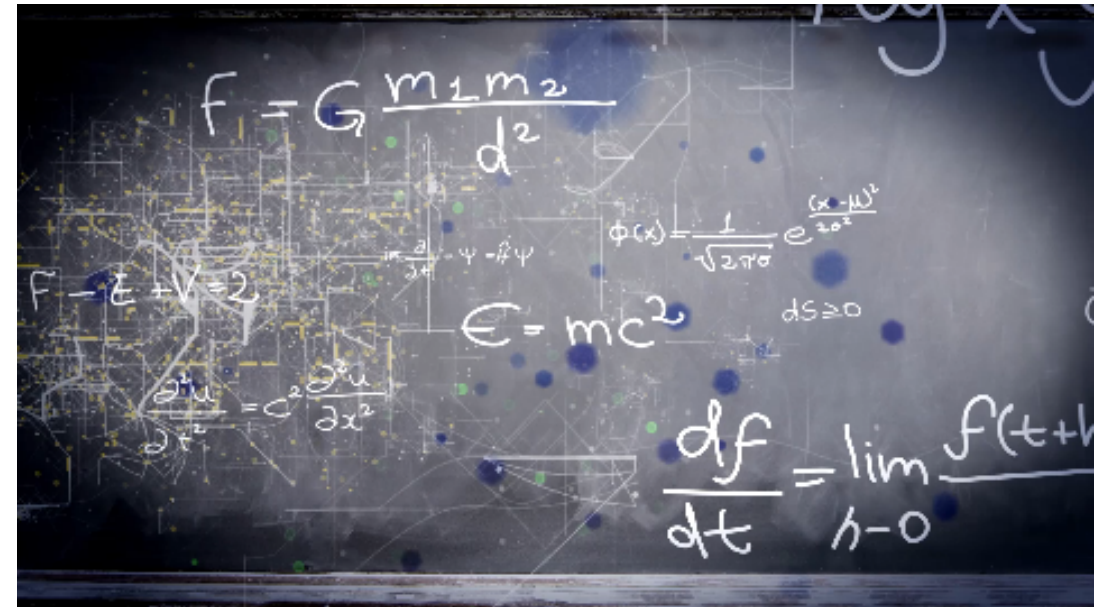 F = G m1m2/d²
φ(x) = 1/√2πσ e^(x-μ)²/2σ²
F - E + V = 2
E = mc²
dS≥0
∂²u/∂t² = c² ∂²u/∂x²
df/dt = lim h-0 f(t+h